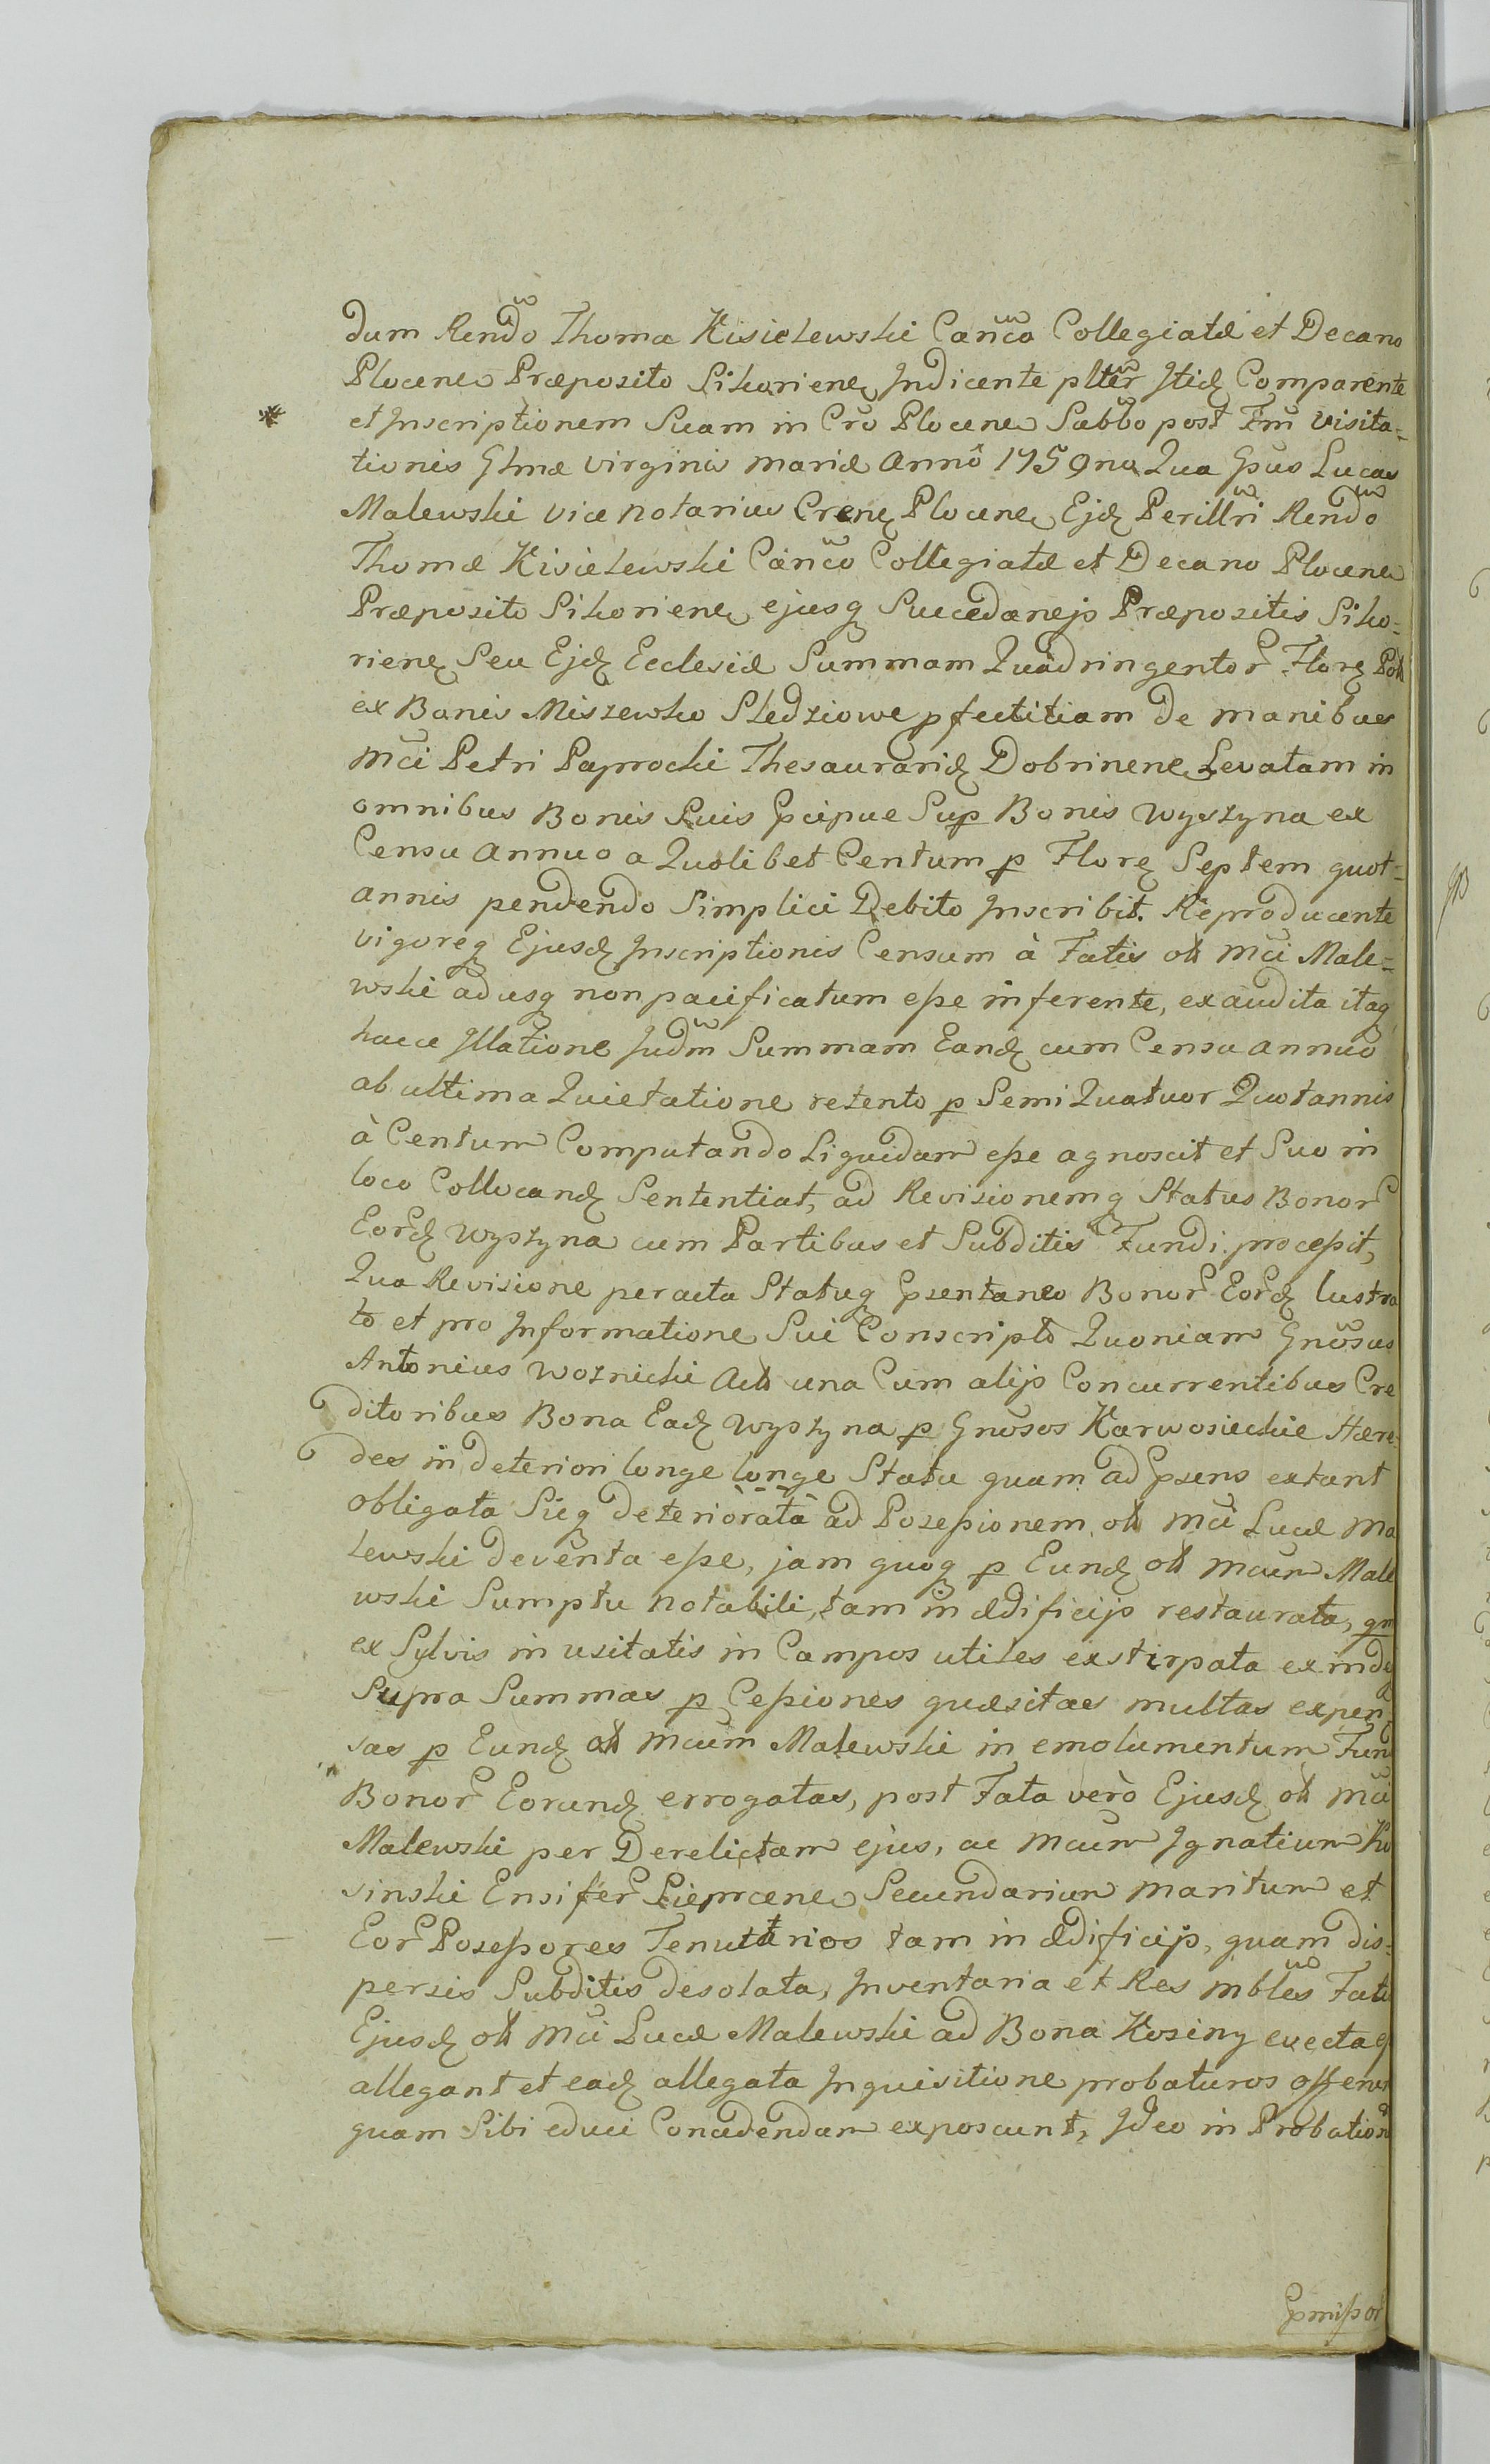 dum Rendo Thoma Kisielewski Canco Collegiatæ et Decano
Plocene Præposito Sikoriene Indicente plter Itid Comparente
et Inscriptionem Suam in Cro Plocene Sabbo post Fm visita=
tionis Glmæ virginis mariæ Anno 1759no Qua Gsus Lucas
Malewski vice notarius Crene Plocene Ejd Perillri Rendo
Thomæ Kisielewski Canco Collegiatæ et Decano Plocene
Præposito Sikoriene ejusq Succedanejs Præpositis Siko=
riene Seu Ejd Ecclesiæ Summam Quadringentor Flore Poll
ex Bonis Miszewko Sledziowe pfectitiam de manibus
Mci Petri Paprocki Thesaurarid Dobrinene Levatam in
omnibus Bonis Suis pcipue Sup Bonis Wyszyna ex
Censu Annuo a Quolibet Centum p Flore Septem quot=
annis pendendo Simplici Debito Inscribit. Reproducente
vigoreq Ejusd Inscriptionis Censum à Fatis oll Mci Male=
wski adusq non pacificatum esse inferente, exaudita itaq
haece Illatione Judm Summam Eand cum Censu annuo
ab ultima Quietatione retento p Semi Quatuor Quotannis
à Centum Computando Liquidam esse agnoscit et Suo in
loco Collocand Sententiat, ad Revisionemq Status Bonor
Eord Wyszyna cum Partibus et Subditis Fundi processit,
Qua Revisione peracta Statuq psentaneo Bonor Eord lustra
to et pro Informatione Sui Conscripto Quoniam Gnosus
Antonius Woznicki Actt una Cum alijs Concurrentibus Cre
ditoribus Bona Ead Wyszyna p Gnosos Karwosieckie Hære
des in deteriori longe longe Statu quam ad psens extant
obligata Sicq deteriorata ad Possessionem oll Mci Lucæ Ma
lewski deventa esse, jam quoq p Eund oll Mcum Male
wski Sumptu notabili, tam in ædificijs restaurata, qm
ex Sylvis in usitatis in Campos utiles exstirpata exindeq
Supra Summas p Cessiones quæsitas multas expen
sas p Eund oll Mcum Malewski in emolumentum Fund
Bonor Eorund errogatas, post Fata verò Ejusd oll Mci
Malewski per Derelictam ejus, ac Mcum Ignatium Ko
sinski Ensifer Sieprcene Secundarium maritum et
Eor Possessores Tenuttrios tam in Ædificijs, quam dis=
persis Subditis desolata, Inventaria et Res mbles Fati
Ejusd oll Mci Lucæ Malewski ad Bona Kosiny evectaq
allegant et ead allegata Inquisitione probaturos offerun
quam Sibi educi Concedendam exposcunt, Ideo in Probation
pmissor